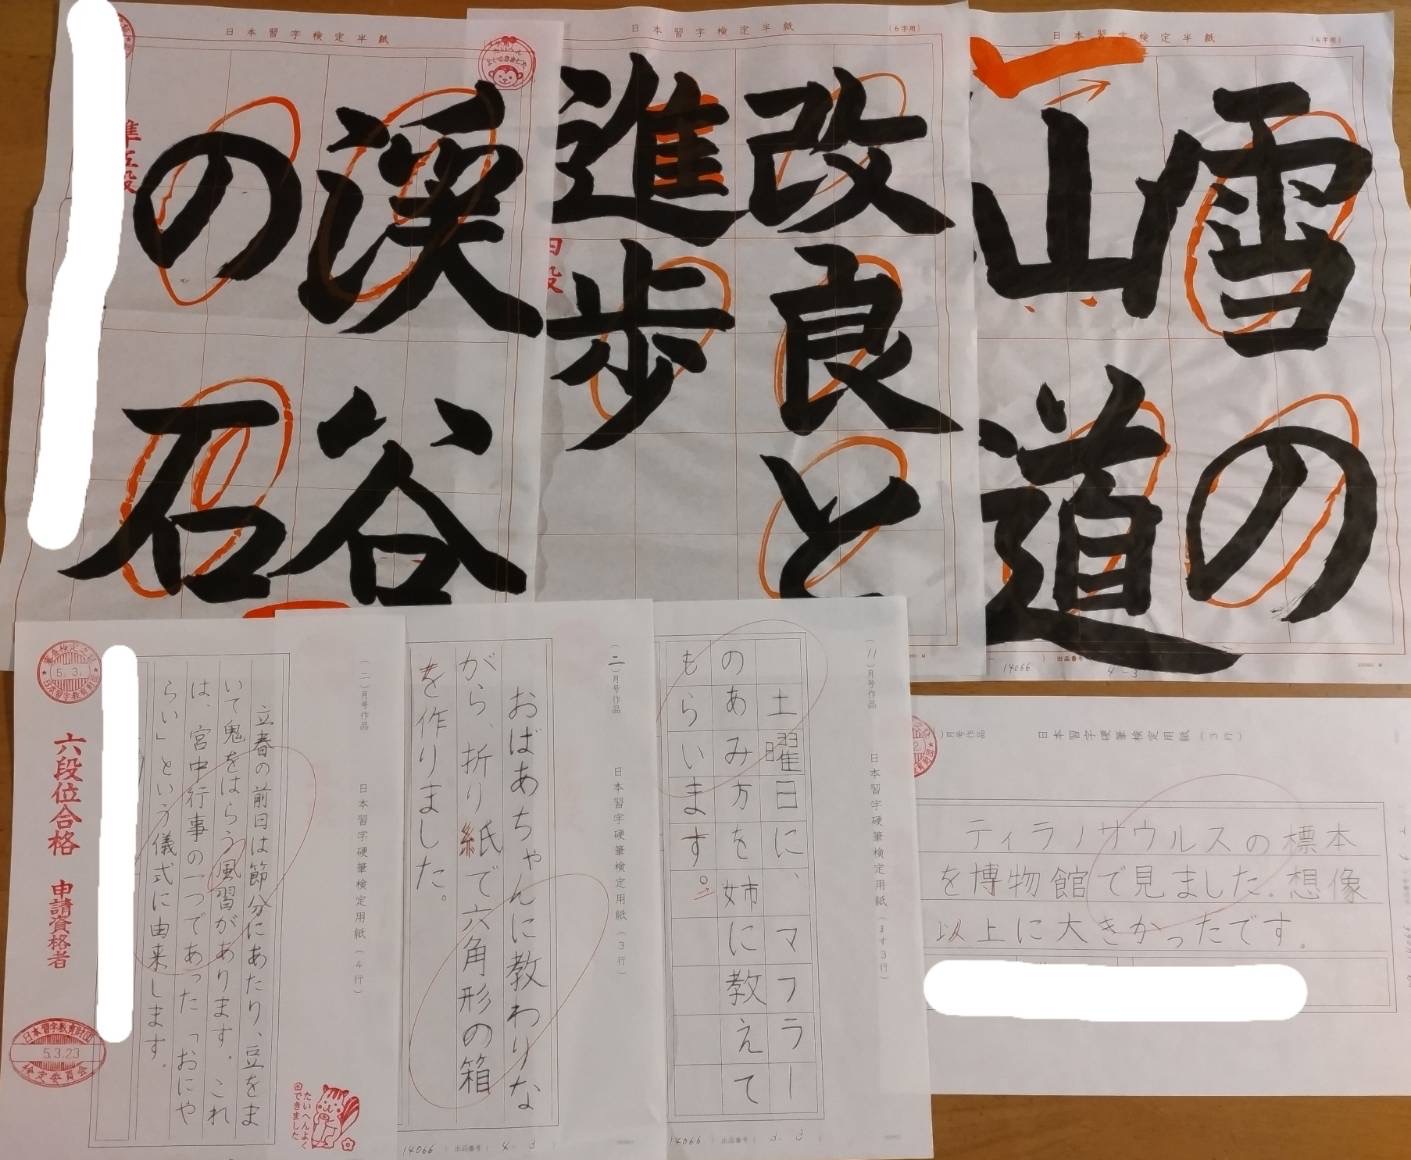 日本習字検定半紙
準五段
渓谷
の石
日本習字検定半紙
(6字用)
四段
改良と
進歩
日本習字検定半紙
雪の
山道
14066
出品番号
4-3
5.3.
日本習字教育財団
六段位合格 申請資格者
日本習字教育財団
5.3.23
検定委員会
(二)月号作品
日本習字硬筆検定用紙(4行)
立春の前日は節分にあたり、豆をま
いて鬼をはらう風習があります。これ
は、宮中行事の一つであった「おにや
らい」という儀式に由来します。
たいへんよく
できました
(二)月号作品
日本習字硬筆検定用紙(3行)
おばあちゃんに教わりな
がら、折り紙で六角形の箱
を作りました。
14066
出品番号(4-3
(11)月号作品
日本習字硬筆検定用紙(ます3行)
土曜日に、マフラー
のあみ方を姉に教えて
もらいます。
14066
出品番号(
月号作品
日本習字硬筆検定用紙(3行)
ティラノサウルスの標本
を博物館で見ました。想像
以上に大きかったです。